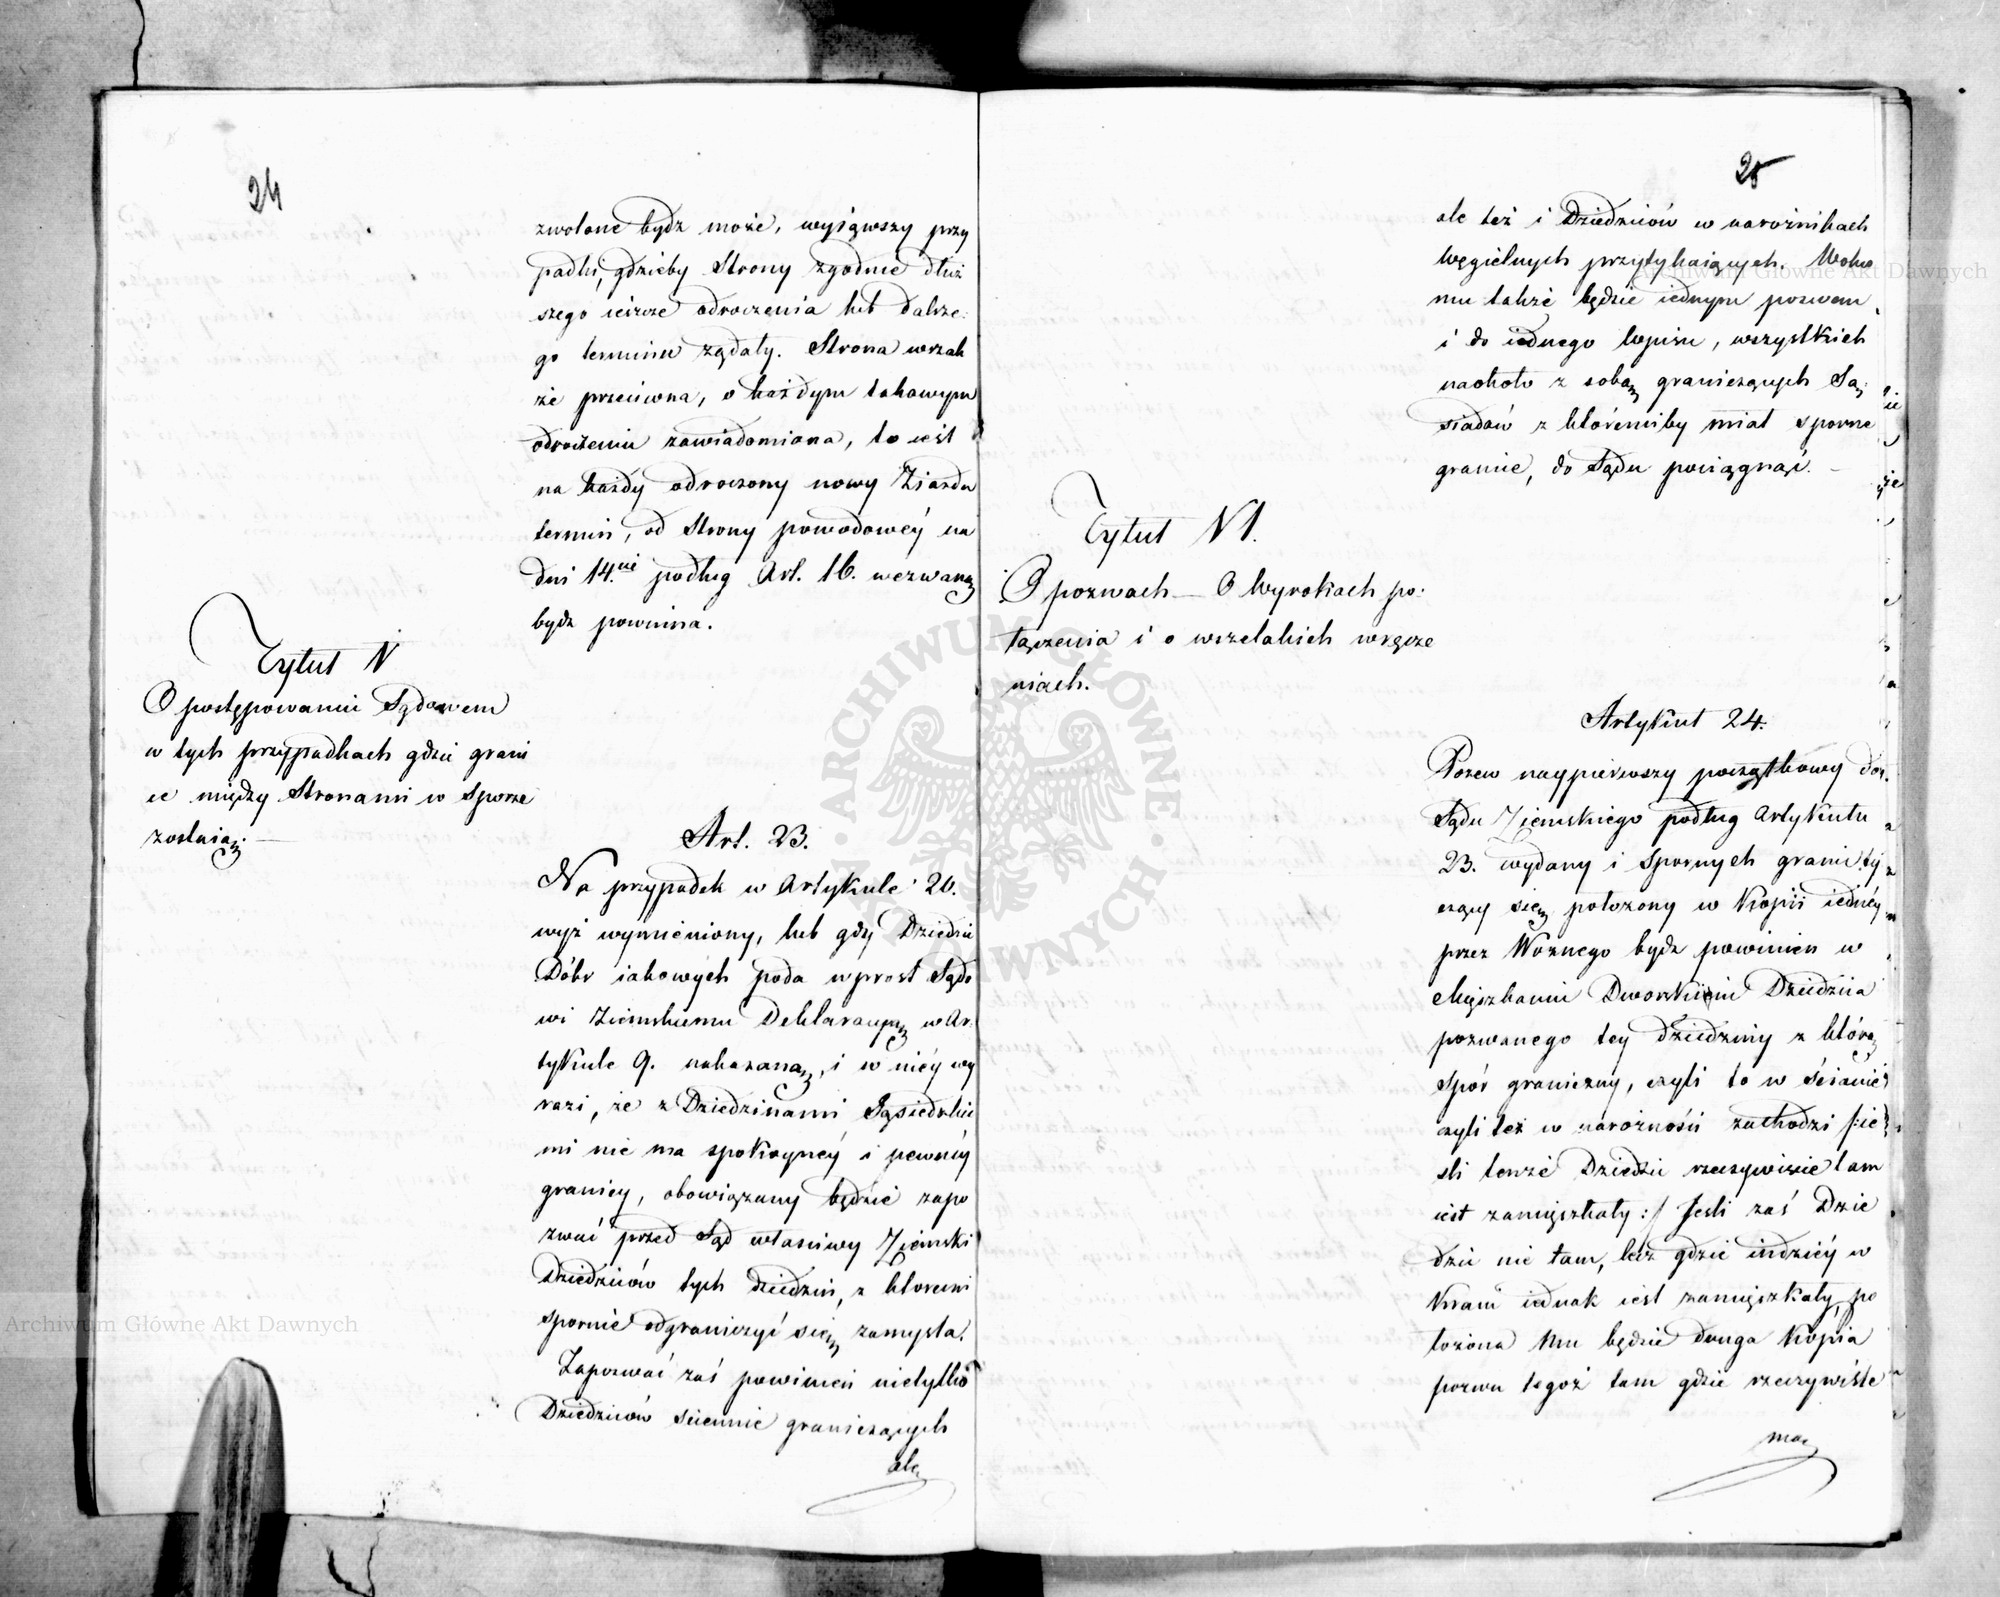 24
zwolone bydz może, wyiąwszy przy
padki, gdzieby Strony zgodnie dłuż
szego ieszcze odroczenia lub dalsze-
go terminu żądały. Strona wszak
że przeciwna, o każdym takowym
odroczeniu zawiadomiona, to iest
na każdy odroczony nowy Ziazdu
termin, od Strony powodowéy na
dni 14.cie podług Art. 16. wezwaną
bydz powinna.
Tytuł V
O postępowaniu Sądowem
w tych przypadkach gdzie grani
ce między Stronami w sporze
zostaią. —
Art. 23.
Na przypadek w Artykule 20.
wyż wymieniony, lub gdy Dziedzic
Dóbr iakowych poda wprost Sądo
wi Ziemskiemu Deklaracyą w Ar-
tykule 9. nakazaną, i w niéy wy
razi, że z Dziedzinami Sąsiedzkie
mi nie ma spokoynéy i pewnéy
granicy, obowiązany będzie zapo
zwać przed Sąd właściwy Ziemski
Dziedziców tych dziedzin, z któremi
spornie odgraniczyć się zamyśla.
Zapozwać zaś powinien nietylko
Dziedziców ściennie graniczących
ale
25
ale też i Dziedziców w narożnikach
węgielnych przytykaiących. Wolno
mu także będzie iednym pozwem
i do iednego wpisu, wszystkich
naokoło z sobą graniczących Są-
siadów z któremiby miał sporne
granice, do Sądu pociągnąć. —
Tytuł VI.
O pozwach — O Wyrokach po-
łączenia i o wszelakich wręcze
niach.
Artykuł 24.
Pozew naypierwszy początkowy do
Sądu Ziemskiego podług Artykułu
23. wydany i spornych granic ty
czący się położony w Kopii iednéy
przez Woźnego bydz powinien w
Mięszkaniu Dworskiem Dziedzica
pozwanego tey dziedziny z którą
spór graniczny, czyli to w ścianie
czyli też w narożności zachodzi /:ie
śli tenże Dziedzic rzeczywiście tam
iest zamięszkały:/ Jeśli zaś Dzie
dzic nie tam, lecz gdzie indziéy w
Kraiu iednak iest zamięszkały, po
łożona mu będzie druga Kopia
pozwu tegoż tam gdzie rzeczywiście
ma
Archiwum Główne Akt Dawnych
Archiwum Główne Akt Dawnych
ARCHIWUM GŁÓWNE AKT DAWNYCH